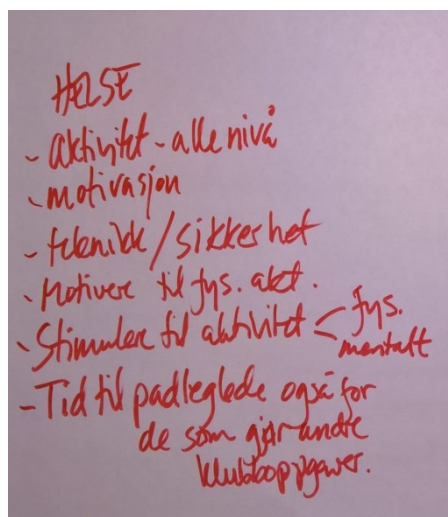 HELSE
- Aktivitet - alle nivå
- motivasjon
- teknikk / sikkerhet
- Motivere til fys. akt.
- Stimulere til aktivitet < fys.
mentalt
- Tid til padleglede også for
de som gjør andre
klubboppgaver.